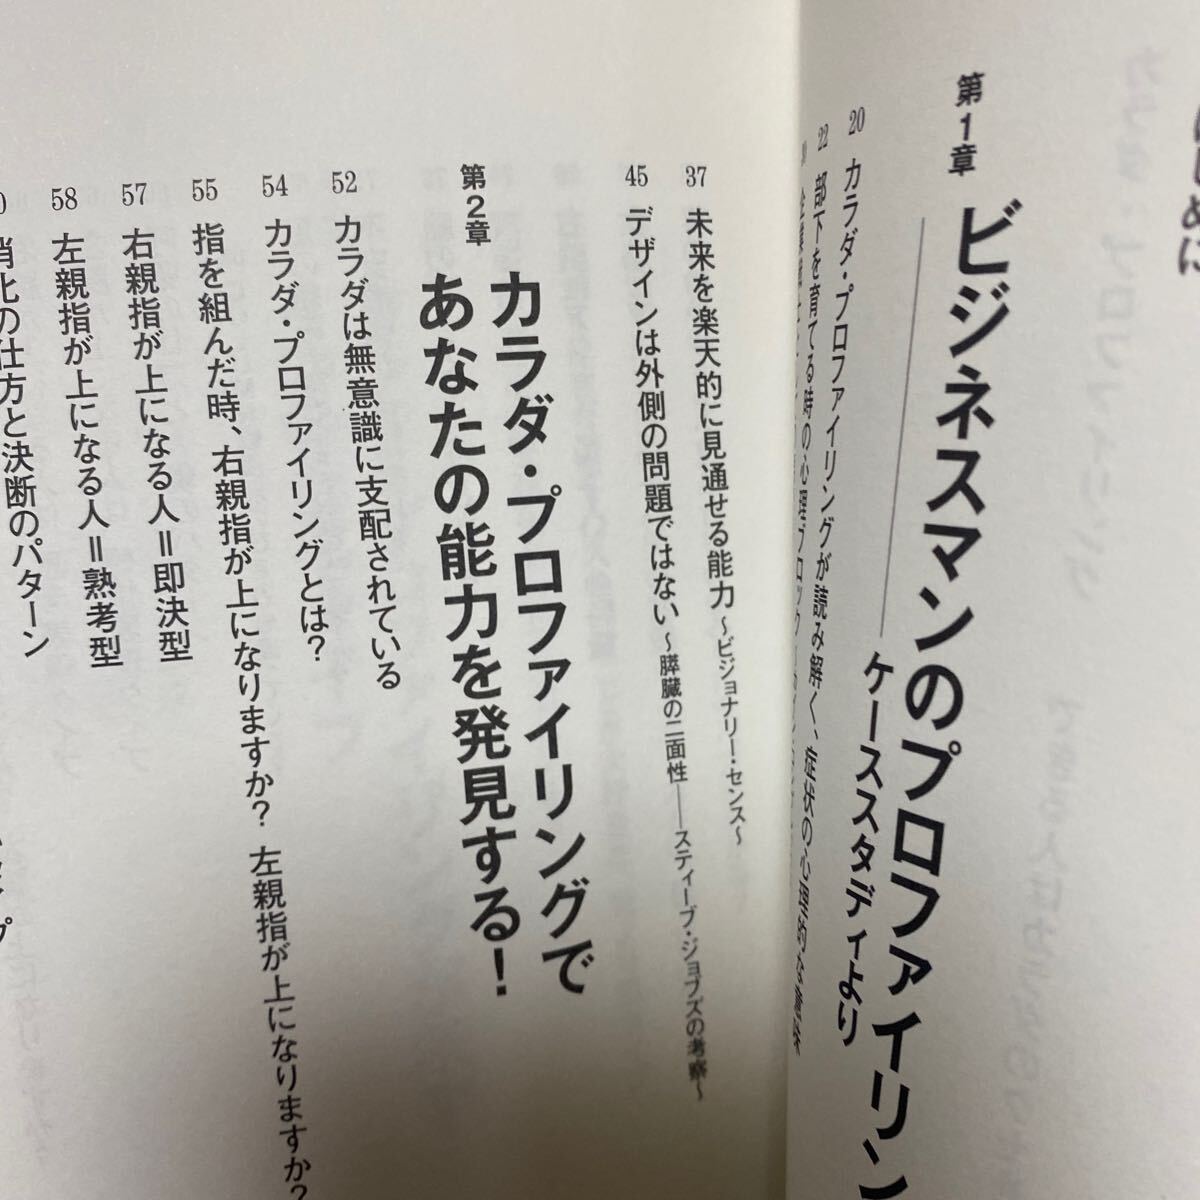 はじめに
第1章 ビジネスマンのプロファイリン
ケーススタディより
20 カラダ・プロファイリングが読み解く、症状の心理的な意味
22 部下を育てる時の心理ブロック
37 未来を楽天的に見通せる能力 〜ビジョナリー・センス〜
45 デザインは外側の問題ではない 〜膵臓の二面性――スティーブ・ジョブズの考察〜
第2章 カラダ・プロファイリングで
あなたの能力を発見する！
52 カラダは無意識に支配されている
54 カラダ・プロファイリングとは？
55 指を組んだ時、右親指が上になりますか？ 左親指が上になりますか？
57 右親指が上になる人＝即決型
58 左親指が上になる人＝熟考型
0 消化の仕方と決断のパターン